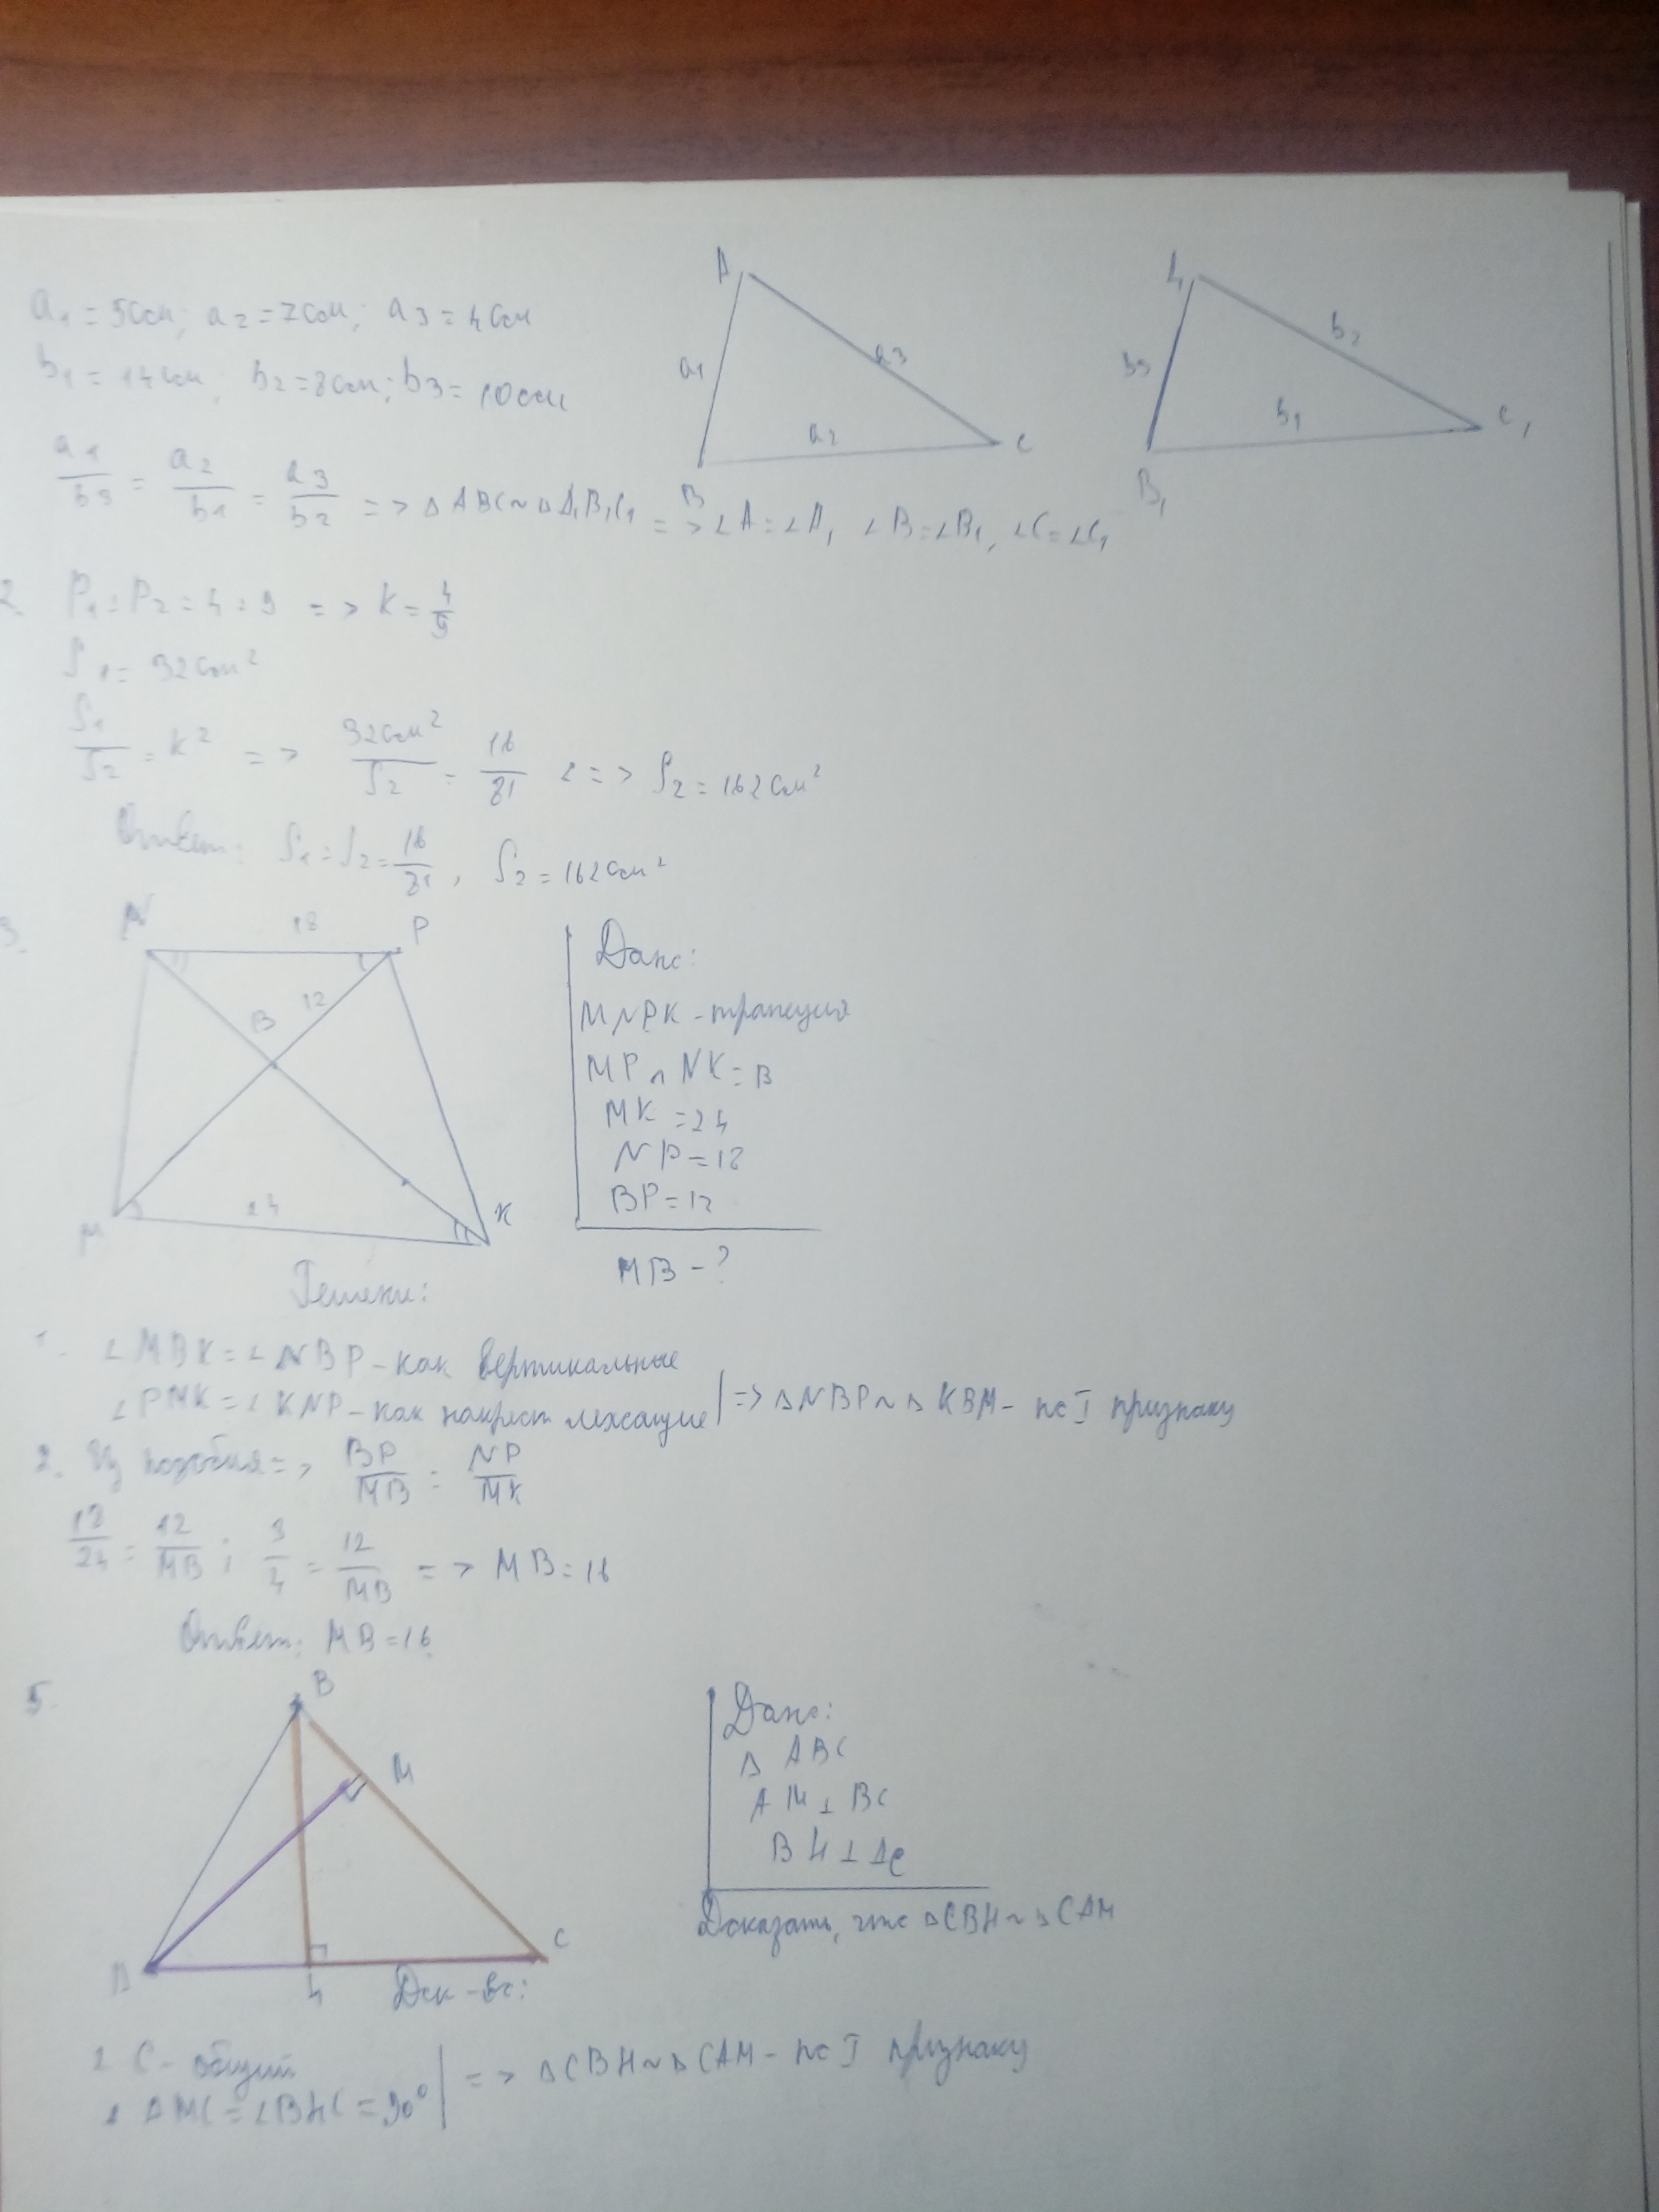 a1 = 5см; a2 = 7см; a3 = 4см
b1 = 14см, b2 = 8см; b3 = 10см
A
a1
a3
a2
B
C
A1
b3
b2
b1
B1
C1
a1/b3 = a2/b1 = a3/b2 => Δ ABC ~ Δ A1B1C1 => ∠A = ∠A1 ∠B = ∠B1, ∠C = ∠C1
2. P1 : P2 = 4 : 9 => K = 4/9
S1 = 32см²
S1/S2 = K² => 32см²/S2 = 16/81 <=> S2 = 162см²
Ответ: S1 : S2 = 16/81, S2 = 162см²
3.
N
18
P
B
12
M
24
K
Дано:
MNPK - трапеция
MP ∩ NK = B
MK = 24
NP = 18
BP = 12
MB - ?
1. ∠ MBK = ∠ NBP - как вертикальные
∠ PMK = ∠ KNP - как накрест лежащие | => Δ NBP ~ Δ KBM - по I признаку
2. Из подобия => BP/MB = NP/MK
18/24 = 12/MB ; 3/4 = 12/MB => MB = 16
Ответ: MB = 16
5.
B
M
A
H
C
Дано:
Δ ABC
AM ⊥ BC
BH ⊥ AC
Доказать, что Δ CBH ~ Δ CAM
Док-во:
∠ C - общий
∠ AMC = ∠ BHC = 90° | => Δ CBH ~ Δ CAM - по I признаку